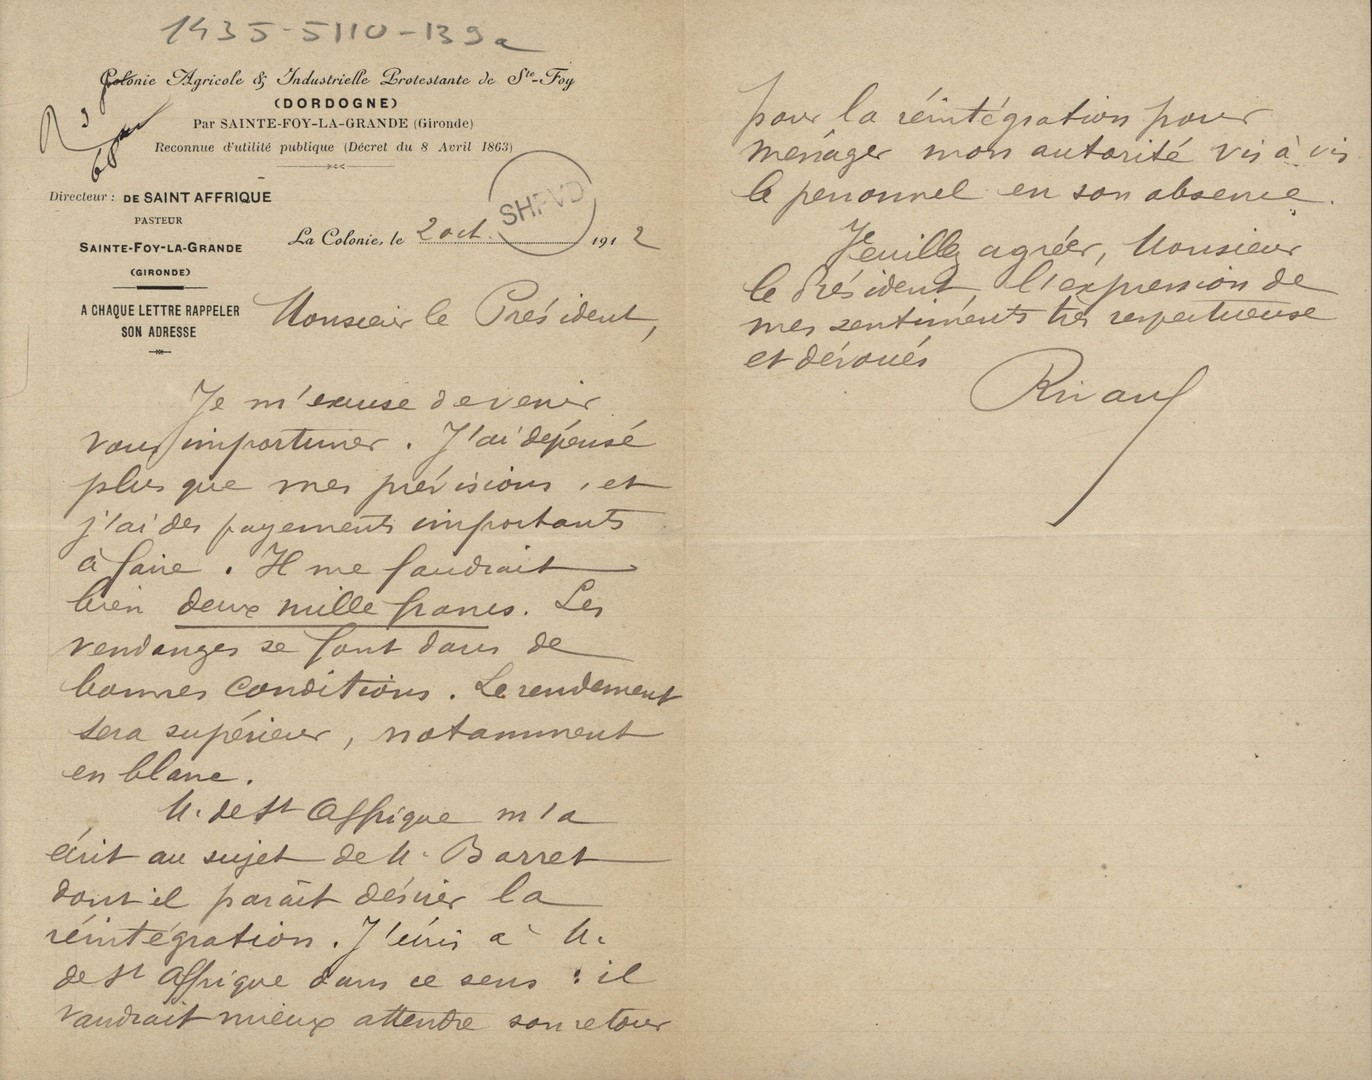 1435-5110-139a
Colonie Agricole & Industrielle Protestante de Ste-Foy
(DORDOGNE)
Par SAINTE-FOY-LA-GRANDE (Gironde)
Reconnue d'utilité publique (Décret du 8 Avril 1863)
R 3
Directeur : DE SAINT AFFRIQUE
PASTEUR
SAINTE-FOY-LA-GRANDE
(GIRONDE)
A CHAQUE LETTRE RAPPELER
SON ADRESSE
SHPVD
La Colonie, le 2 oct. 1912
Monsieur le Président,
Je m'excuse de venir
vous importuner. J'ai dépensé
plus que mes prévisions, et
j'ai des payements importants
à faire. Il me faudrait
bien deux mille francs. Les
vendanges se font dans de
bonnes conditions. Le rendement
sera supérieur, notamment
en blanc.
M. de St Affrique m'a
écrit au sujet de M. Barret
dont il paraît désirer la
réintégration. J'écris à M.
de St Affrique dans ce sens : il
vaudrait mieux attendre son retour
pour la réintégration pour
ménager mon autorité vis à vis
le personnel en son absence.
Veuillez agréer, Monsieur
le Président l'expression de
mes sentiments très respectueuse
et dévoués
Rivaud